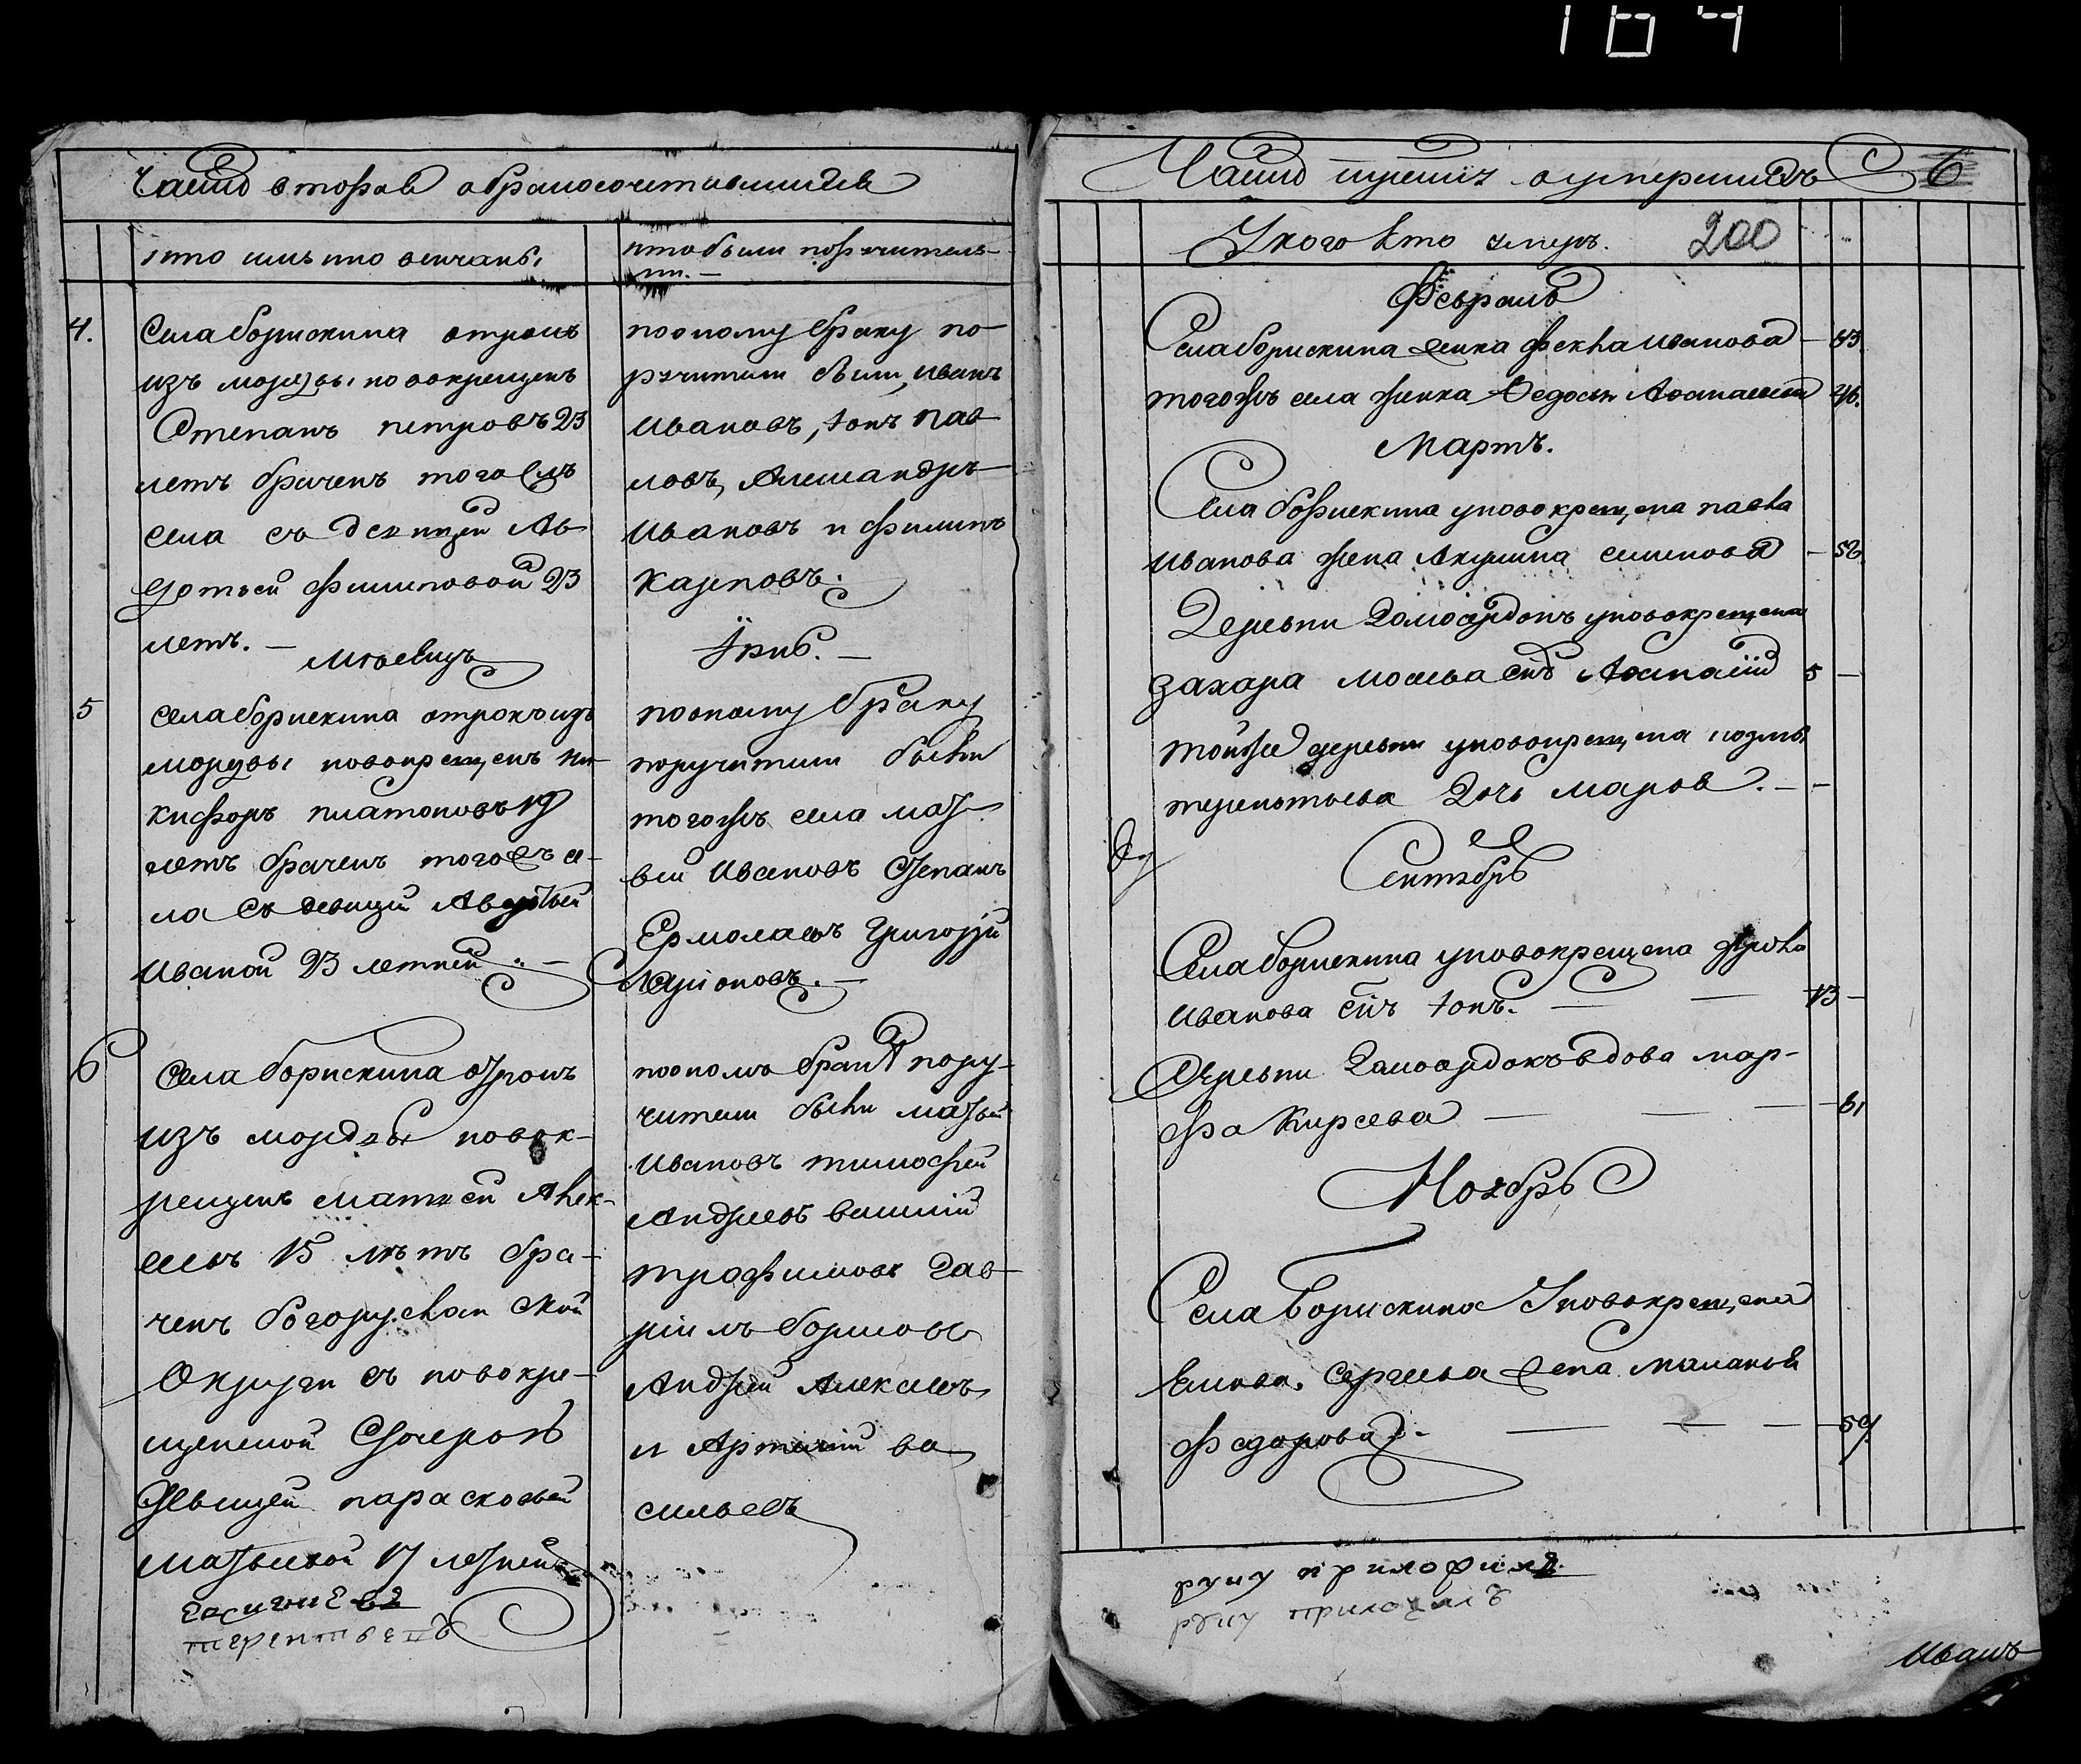 164
Часть вторая о бракосочетавшихся
кто имяны венчаны
кто были поручитель-
ми. —
4.
Села борискина отрокъ
изъ мордвы новокрещенъ
Степанъ петровъ 23
летъ браченъ того жъ
села съ девицей Ав-
дотьей филиповой 23
летъ. —
поономy браку по-
ручители были, иванъ
Ивановъ, іонъ пав-
ловъ, Александръ
Ивановъ и филипъ
карповъ.
іюнь. —
5
села борискина отрокъ изъ
мордвы новокрещенъ ни-
кифоръ платоновъ 19
летъ браченъ того жъ се-
ла съ девицей Авдотьей
Иваной 23 летней. —
поономy браку
поручители были
того жъ села мат-
вей Ивановъ Степанъ
Ермолаевъ Григорій
Ларіоновъ. —
6
Села борискина отрокъ
изъ мордвы новок-
рещенъ матвей Алек-
сеевъ 15 летъ бра-
ченъ богоруслан ской
округи съ новокре-
щенной дочерью
девицей парасковьей
матвеевой 17 летней
пооному браку пору-
чители были матвей
Ивановъ тимофей
Андреевъ василій
трофимовъ Гав-
риилъ борисовъ
Андрей Алексеевъ
и Артемий ва
сильевъ
терентьевъ
Часть третія о умершихъ
6
У кого кто умеръ.
200
Февраль
Села борискина женка фекла иванова — 43
того жъ села женка Федосья Афанасьева 46.
Мартъ.
Села борискина у новокрещена павла
Иванова жена Акулина семенова — 56
Деревни Домосердокъ у новокрещена
Захара моисеева снъ Афанасій 5 —
той же деревни у новокрещена козмы
терентьева дочь марѳа. — —
Сентябрь
Села борискина у новокрещена фрола
Иванова снъ іонъ. — — 13 —
Деревни Домосердокъ вдова мар-
фа Кирсева — — — 61
Ноябрь
Села борискина У новокрещена
Якова Сергеева жена маланья
федорова. — — — 59.
руку приложилъ
руку приложилъ
Иванъ